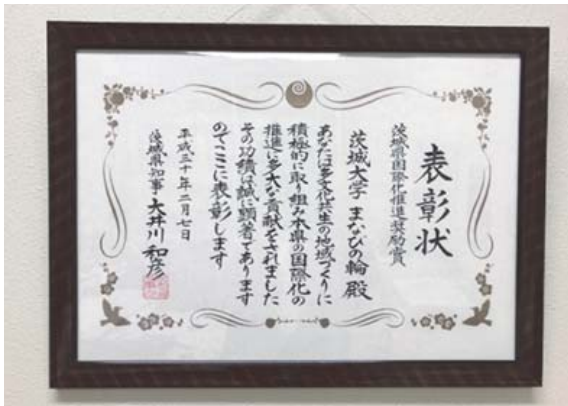 表彰状
茨城県国際化推進奨励賞
茨城大学 まなびの輪 殿
あなたは多文化共生の地域づくりに
積極的に取り組み本県の国際化の
推進に多大な貢献をされました
その功績は誠に顕著であります
のでここに表彰します
平成三十年二月七日
茨城県知事 大井川和彦